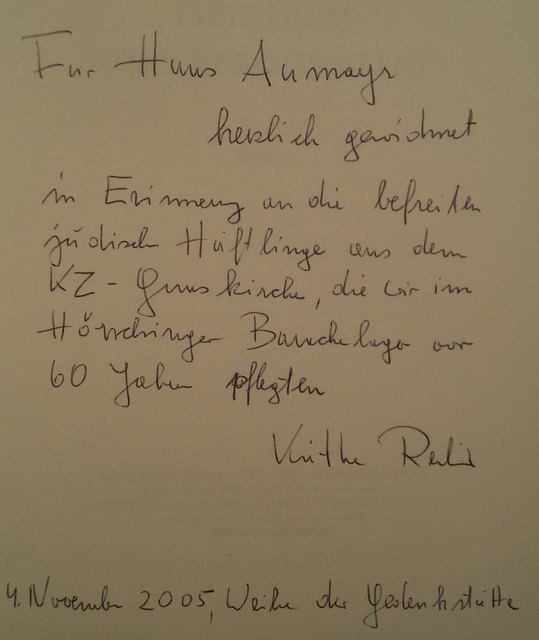 Für Hans Aumayr
herzlich gewidmet
in Erinnerung an die befreiten
jüdischen Häftlinge aus dem
KZ-Gunskirchen, die wir im
Hörschinger Barackenlager vor
60 Jahren pflegten
Käthe
4. November 2005, Weihe der Gedenkstätte